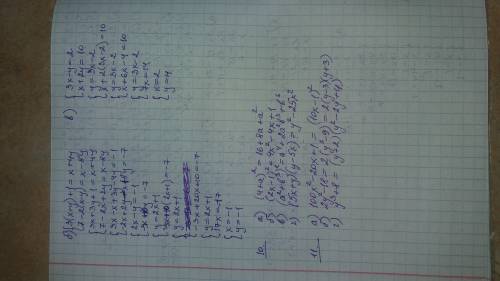 б) {3(x+y)+1=x+4y
{7-2(x-y)=x-8y
{3x+3y+1=x+4y
{7-2x+2y=x-8y
{3x+3y-x-4y=-1
{-2x+2y-x+8y=-7
{2x-y=-1
{-3x+10y=-7
{y=2x+1
{-3x+10(2x+1)=-7
{y=2x+1
{-3x+20x+10=-7
{y=2x+1
{17x=-17
{x=-1
{y=-1
в) {3x-y=2
{x+2y=10
{y=3x-2
{x+2(3x-2)=10
{y=3x-2
{x+6x-4=10
{y=3x-2
{7x=14
{x=2
{y=4
10. а) (4+a)²=16+8a+a²
б) (2x-1)²=4x²-4x+1
в)
г) (5x+y)(y-5x)=y²-25x²
11. а) 100x²-20x+1=(10x-1)²
2y²-18=2(y²-9)=2(y-3)(y+3)
г) y³+8=(y+2)(y²-2y+4)